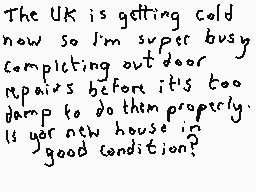 The UK is getting cold
now so I'm super busy
completing outdoor
repairs before it's too
damp to do them properly.
Is yor new house in
good condition?